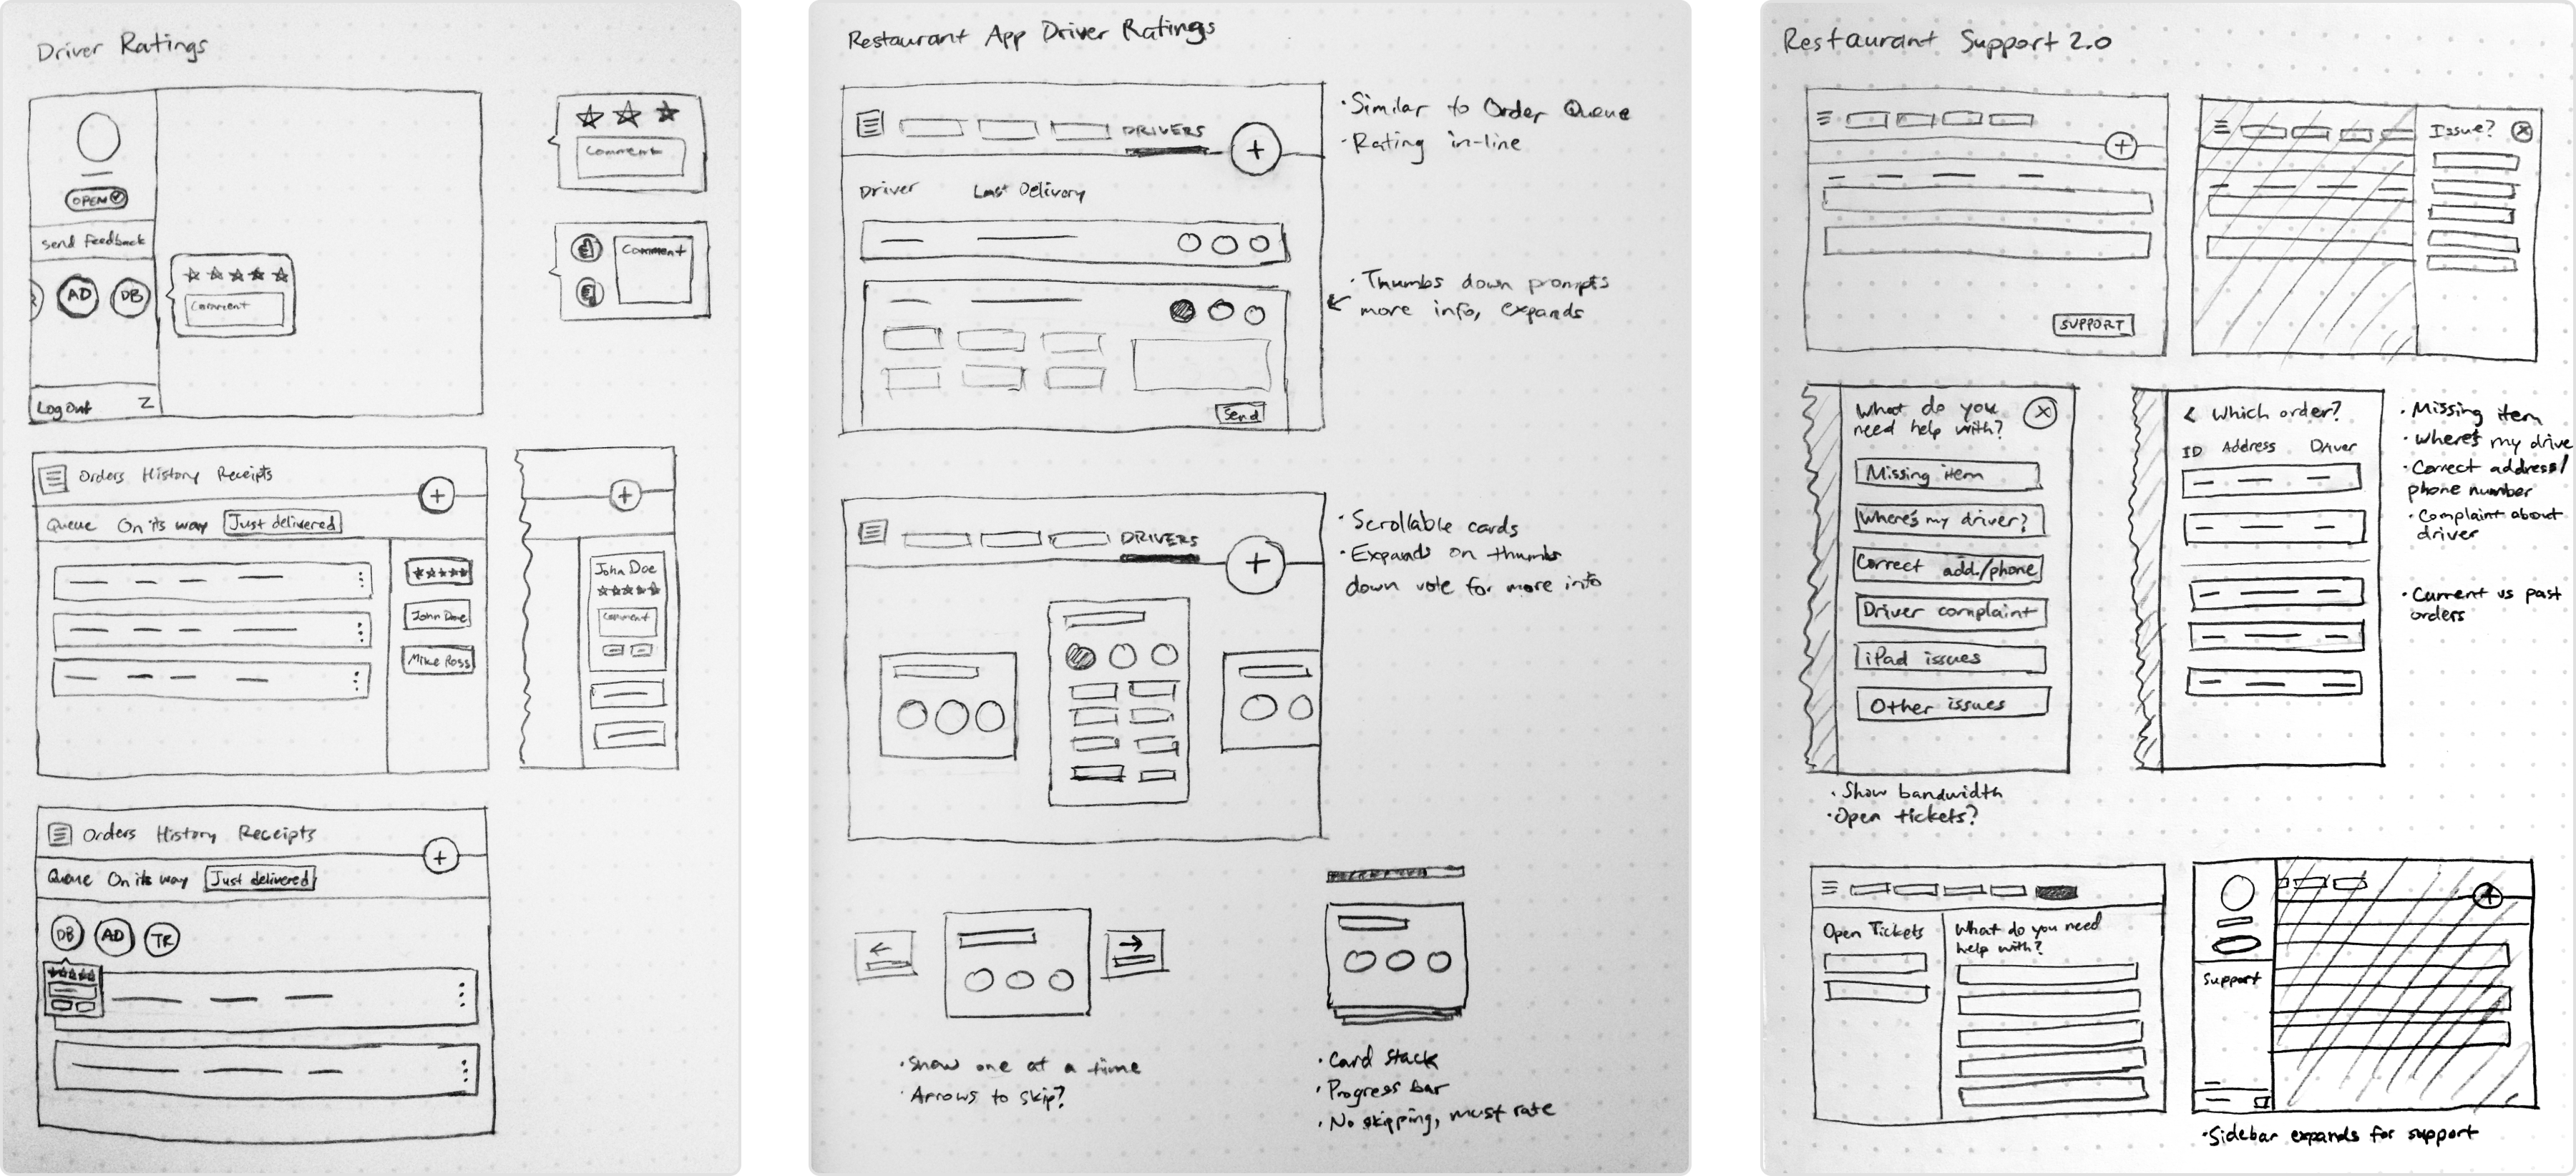 Driver Ratings
OPEN
Send Feedback
AD DB
Comment
Log Out
Comment
Comment
Orders History Receipts
Queue On its way Just delivered
John Doe
Mike Ross
John Doe
Comment
Orders History Receipts
Queue On its way Just delivered
DB AD TR
Restaurant App Driver Ratings
DRIVERS
Driver Last Delivery
Send
·Similar to Order Queue
·Rating in-line
·Thumbs down prompts
more info, expands
DRIVERS
·Scrollable cards
·Expands on thumbs
down vote for more info
·Show one at a time
·Arrows to skip?
·Card stack
·Progress bar
·No skipping, must rate
Restaurant Support 2.0
SUPPORT
Issue?
What do you
need help with?
Missing item
Where's my driver?
Correct add./phone
Driver complaint
iPad issues
Other issues
·Show bandwidth
·Open tickets?
< Which order?
ID Address Driver
·Missing item
·Where's my drive
·Correct address/
phone number
·Complaint about
driver
·Current vs past
orders
Open Tickets
What do you need
help with?
Support
·Sidebar expands for support